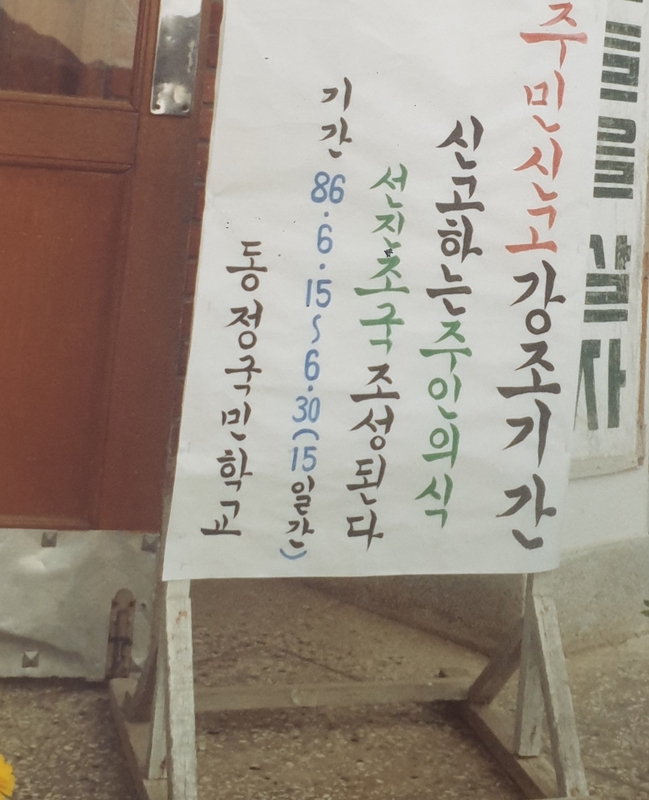 주민신고강조기간
신고하는주인의식
선진조국조성된다
기간 86.6.15~6.30(15일간)
동정국민학교
를 살
자